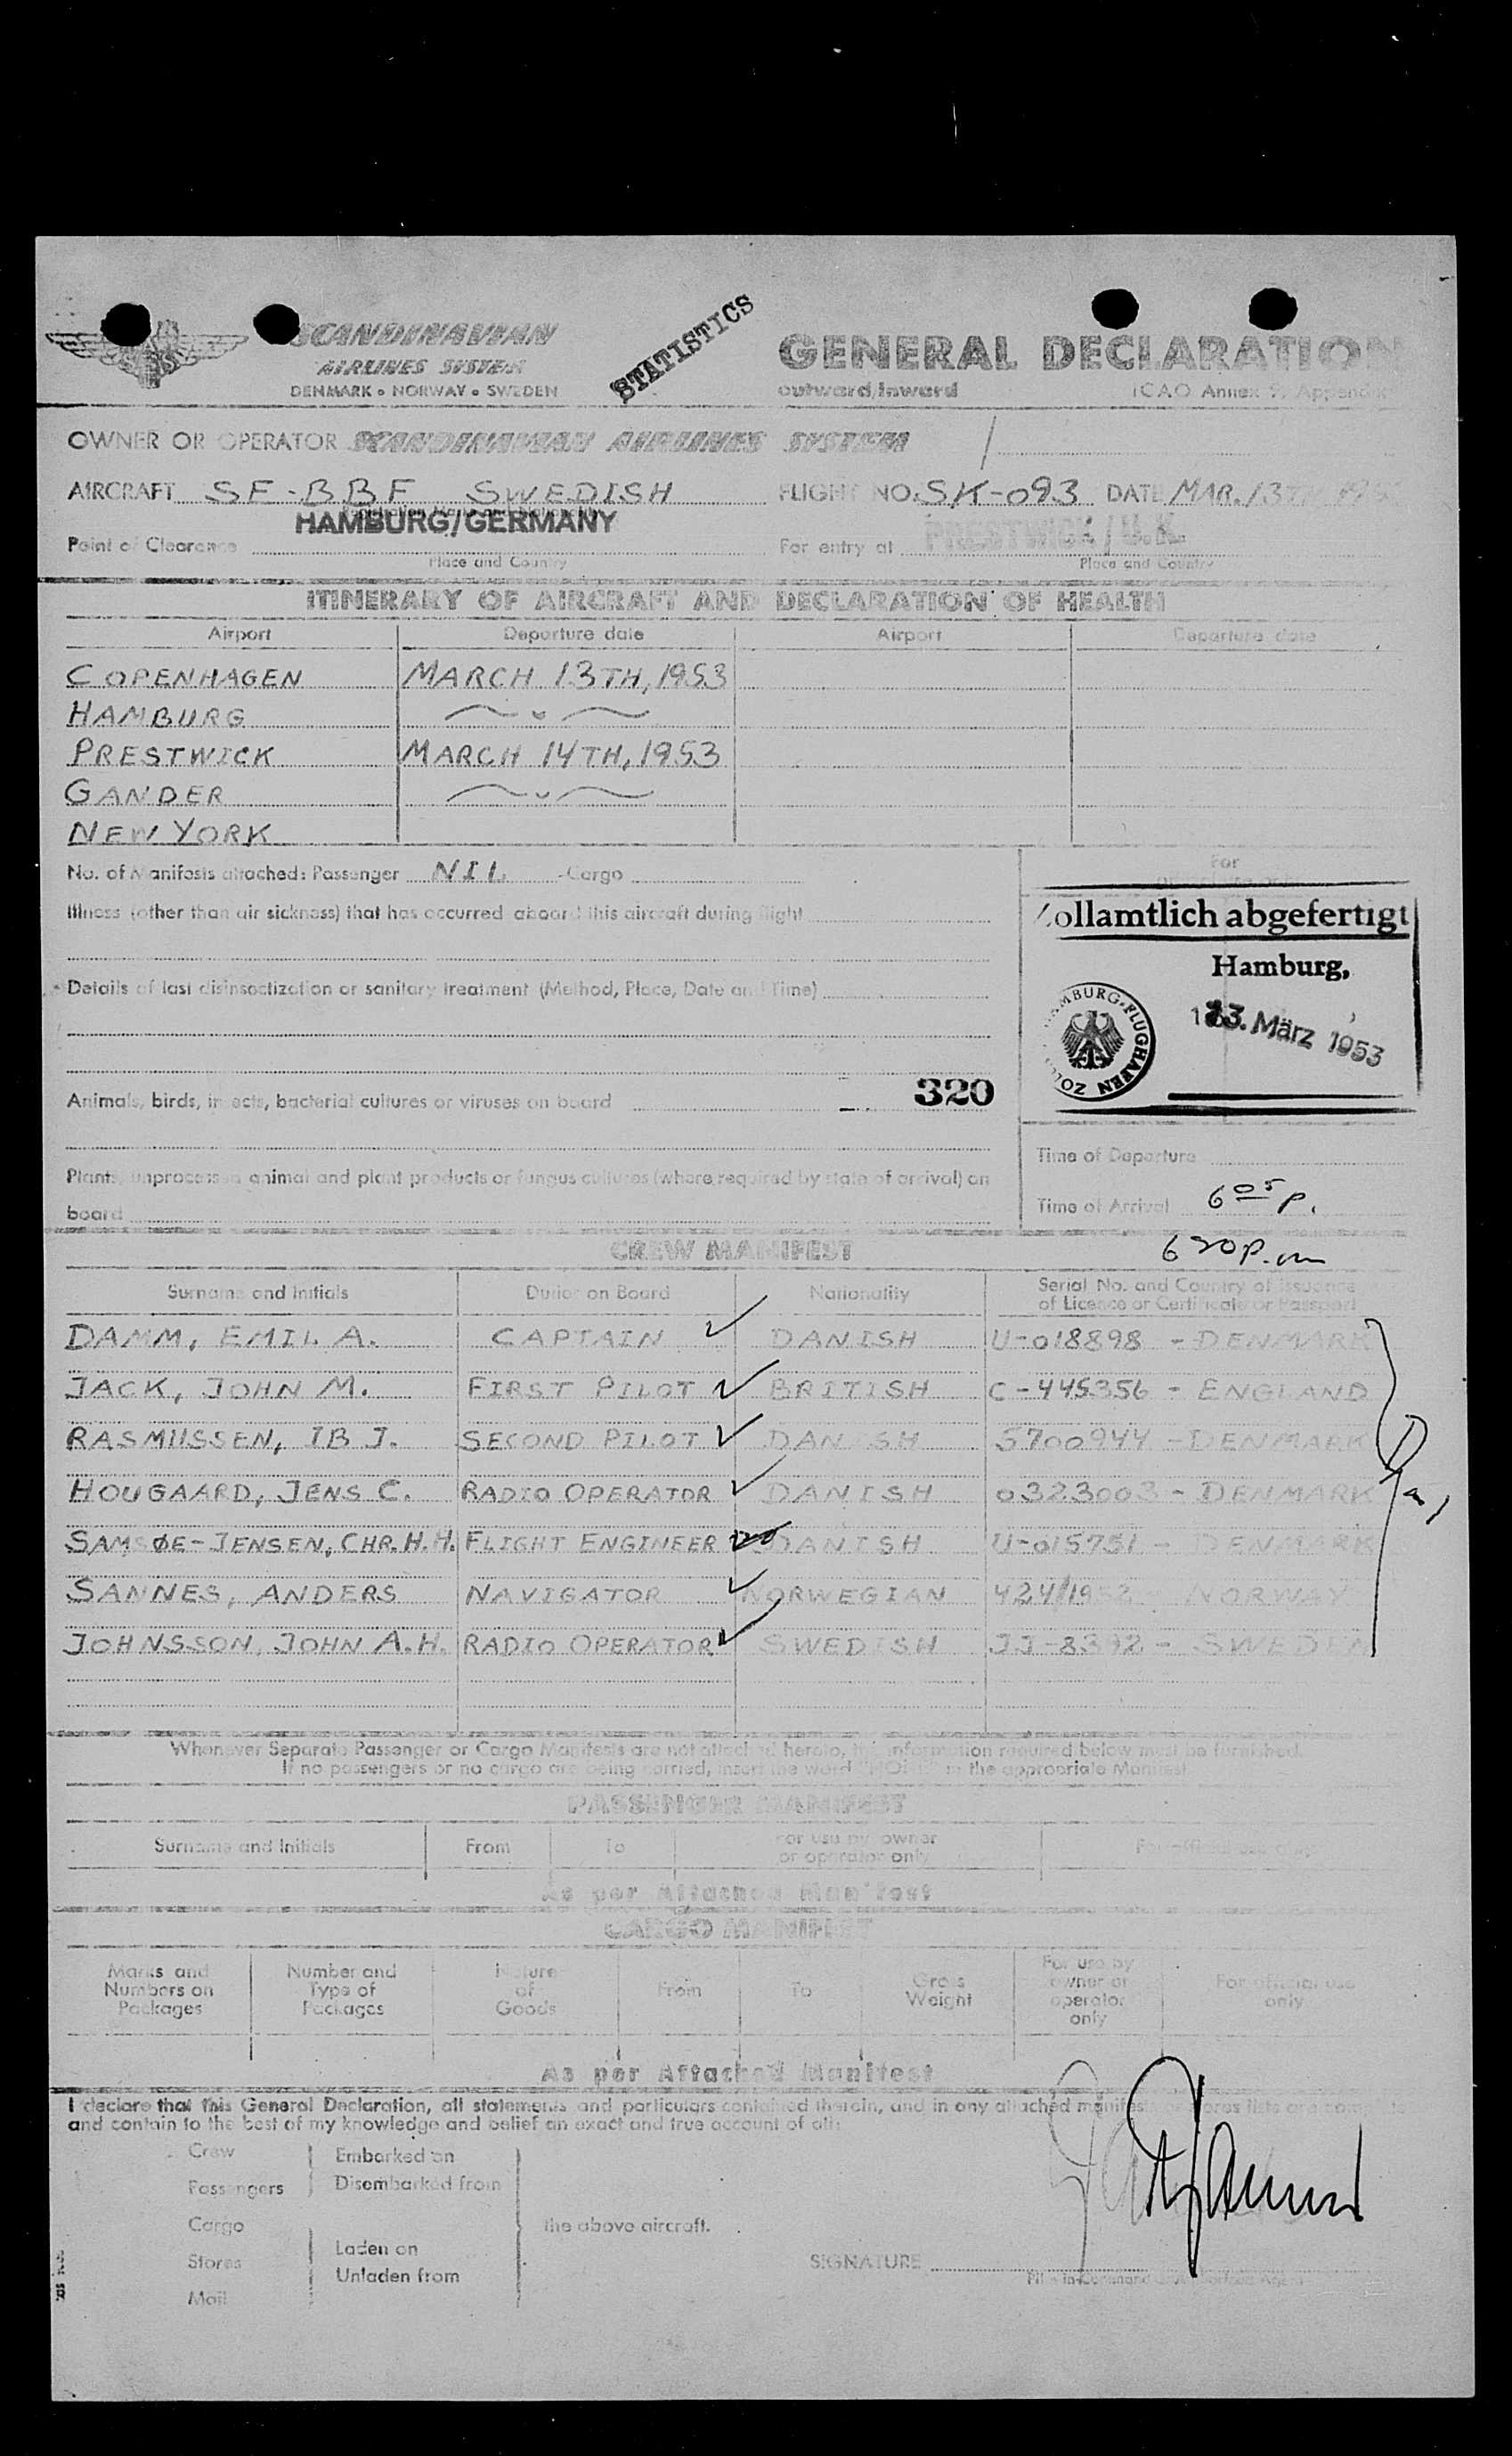 SCANDINAVIAN
AIRLINES SYSTEM
DENMARK • NORWAY • SWEDEN
STATISTICS
GENERAL DECLARATION
outward/inward
ICAO Annex 9, Appendix
OWNER OR OPERATOR SCANDINAVIAN AIRLINES SYSTEM
AIRCRAFT SE-BBF SWEDISH FLIGHT NO. SK-093 DATE MAR. 13TH 195
HAMBURG/GERMANY PRESTWICK/U.K.
Point of Clearance For entry at
Place and Country Place and Country
ITINERARY OF AIRCRAFT AND DECLARATION OF HEALTH
Airport Departure date Airport Departure date
COPENHAGEN MARCH 13TH, 1953
HAMBURG ~ " ~
PRESTWICK MARCH 14TH, 1953
GANDER ~ " ~
NEW YORK
No. of Manifests attached: Passenger NIL Cargo
For
Illness (other than air sickness) that has occurred aboard this aircraft during flight
Zollamtlich abgefertigt
Hamburg,
HAMBURG-FLUGHAFEN ZOLL
13. März 1953
Details of last disinsectization or sanitary treatment (Method, Place, Date and Time)
320
Animals, birds, insects, bacterial cultures or viruses on board
Plants, unprocessed animal and plant products or fungus cultures (where required by state of arrival) on
board
Time of Departure
Time of Arrival 6 05 p.
6 20 p.m
CREW MANIFEST
Surname and Initials Duties on Board Nationality Serial No. and Country of Issuance
of Licence or Certificate or Passport
DAMM, EMIL A. CAPTAIN DANISH U-018898 - DENMARK
JACK, JOHN M. FIRST PILOT BRITISH C-445356 - ENGLAND
RASMUSSEN, IB J. SECOND PILOT DANISH 5700944 - DENMARK
HOUGAARD, JENS C. RADIO OPERATOR DANISH 0323003 - DENMARK
SAMSØE-JENSEN, CHR. H. H. FLIGHT ENGINEER DANISH U-015751 - DENMARK
SANNES, ANDERS NAVIGATOR NORWEGIAN 424/1952 NORWAY
JOHNSSON, JOHN A. H. RADIO OPERATOR SWEDISH JJ-8392 - SWEDEN
Whenever Separate Passenger or Cargo Manifests are not attached hereto, the information required below must be furnished.
If no passengers or no cargo are being carried, insert the word "NONE" in the appropriate Manifest
PASSENGER MANIFEST
Surname and Initials From To For use by owner
or operator only For official use only
As per Attached Manifest
CARGO MANIFEST
Marks and
Numbers on
Packages
Number and
Type of
Packages
Nature
of
Goods
From
To
Gross
Weight
For use by
owner or
operator
only
For official use
only
As per Attached Manifest
I declare that this General Declaration, all statements and particulars contained therein, and in any attached manifests or stores lists are complete
and contain to the best of my knowledge and belief an exact and true account of all:
Crew
Passengers
Embarked on
Disembarked from
Cargo
Stores
Mail
Laden on
Unladen from
the above aircraft.
SIGNATURE
Pilot-in-Command or Authorised Agent